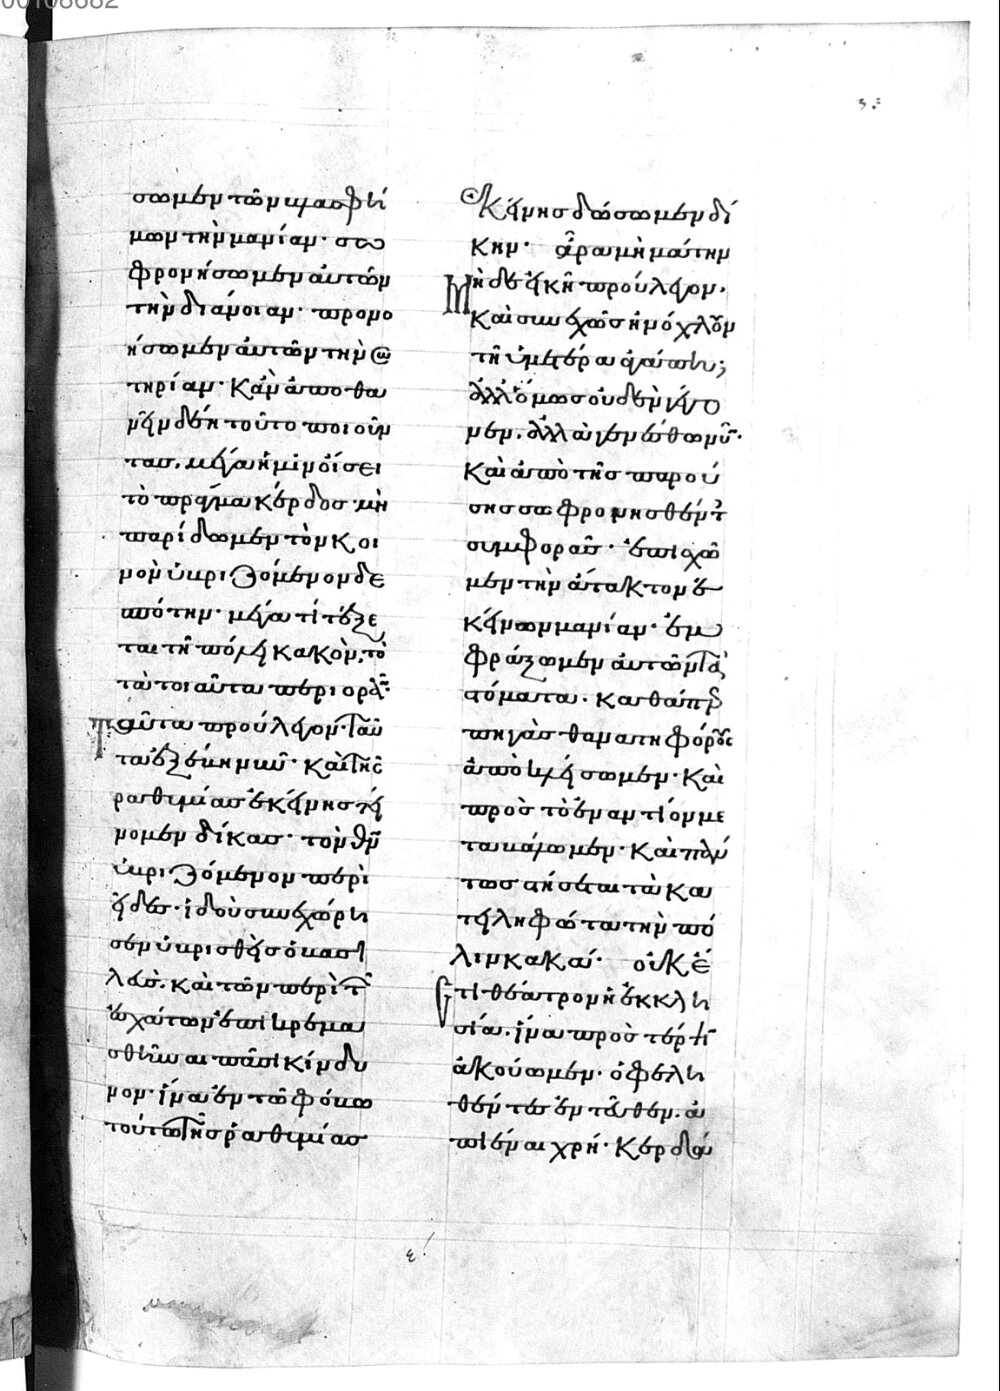 σωμεν τῶν βλασφή
μων τὴν μανίαν· σω
φρονήσωμεν αὐτῶν
τὴν διάνοιαν· προνο
ήσωμεν αὐτῶν τὴν σω
τηρίαν· κἂν ἀποθα
νεῖν δέη τοῦτο ποιοῦν
τας, μέγα ἡμῖν οἴσει
τὸ πρᾶγμα κέρδος· μὴ
παρίδωμεν τὸν κοι
νὸν ὑβριζόμενον δε
σπότην· μέγα τί τέξε
ται τῇ πόλει κακὸν, τὸ
τὰ τοιαῦτα περιορᾶν·
ταῦτα προὔλεγον· ταῦ
τα ἐξέβη νῦν· καὶ τῆς
ῥαθυμίας ἐκείνης τί
νομεν δίκας· τὸν θν
ὑβριζόμενον περι
εῖδες· ἰδοὺ συνεχώρη
σεν ὑβρισθῆναι βασι
λέας· καὶ τῶν περὶ τῶν
ἐσχάτων ἐπικρεμα
σθῆναι πᾶσι κίνδυ
νον· ἵνα ἐν τῶ φόβω
τούτω τῆς ῥαθυμίας
ἐκείνης δώσωμεν δί
κην· ἆρα μὴ μάτην
ἢ δὲ εἰκῆ προύλεγον·
καὶ συνεχῶς ἠνόχλουν
τῆ ὑμετέρα ἀγάπη;
ἀλλ' ὅμως οὐδὲν ἐγένο
μεν· ἀλλὰ γενέσθω νῦν·
καὶ ἀπὸ τῆς παρού
σης σωφρονισθέντες
συμφορᾶς· ἐπισχῶ
μεν τὴν ἄτακτον ἐ
κείνων μανίαν· ἐμ
φράξωμεν αὐτῶν τὰ
στόματα· καθάπερ
πηγὰς θανατηφόρους
ἀποκλείσωμεν· καὶ
πρὸς τὸ ἐναντίον με
ταβάλωμεν· καὶ πάν
τως στήσεται τὰ κα
τειληφότα τὴν πό
λιν κακά· οὐκ ἔ
στι θέατρον ἡ ἐκκλη
σία, ἵνα πρὸς τέρψιν
ἀκούωμεν· ὠφελη
θέντες ἐντεῦθεν ἀ
πιέναι χρή· κερδάν
ε